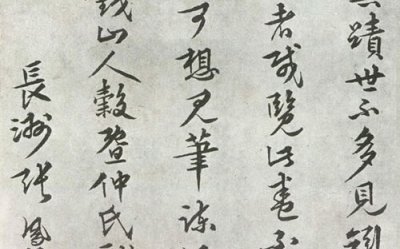 蹟世不多見
者或覽此卷不
可想見筆諫
山人穀暨仲氏
長洲張鳳